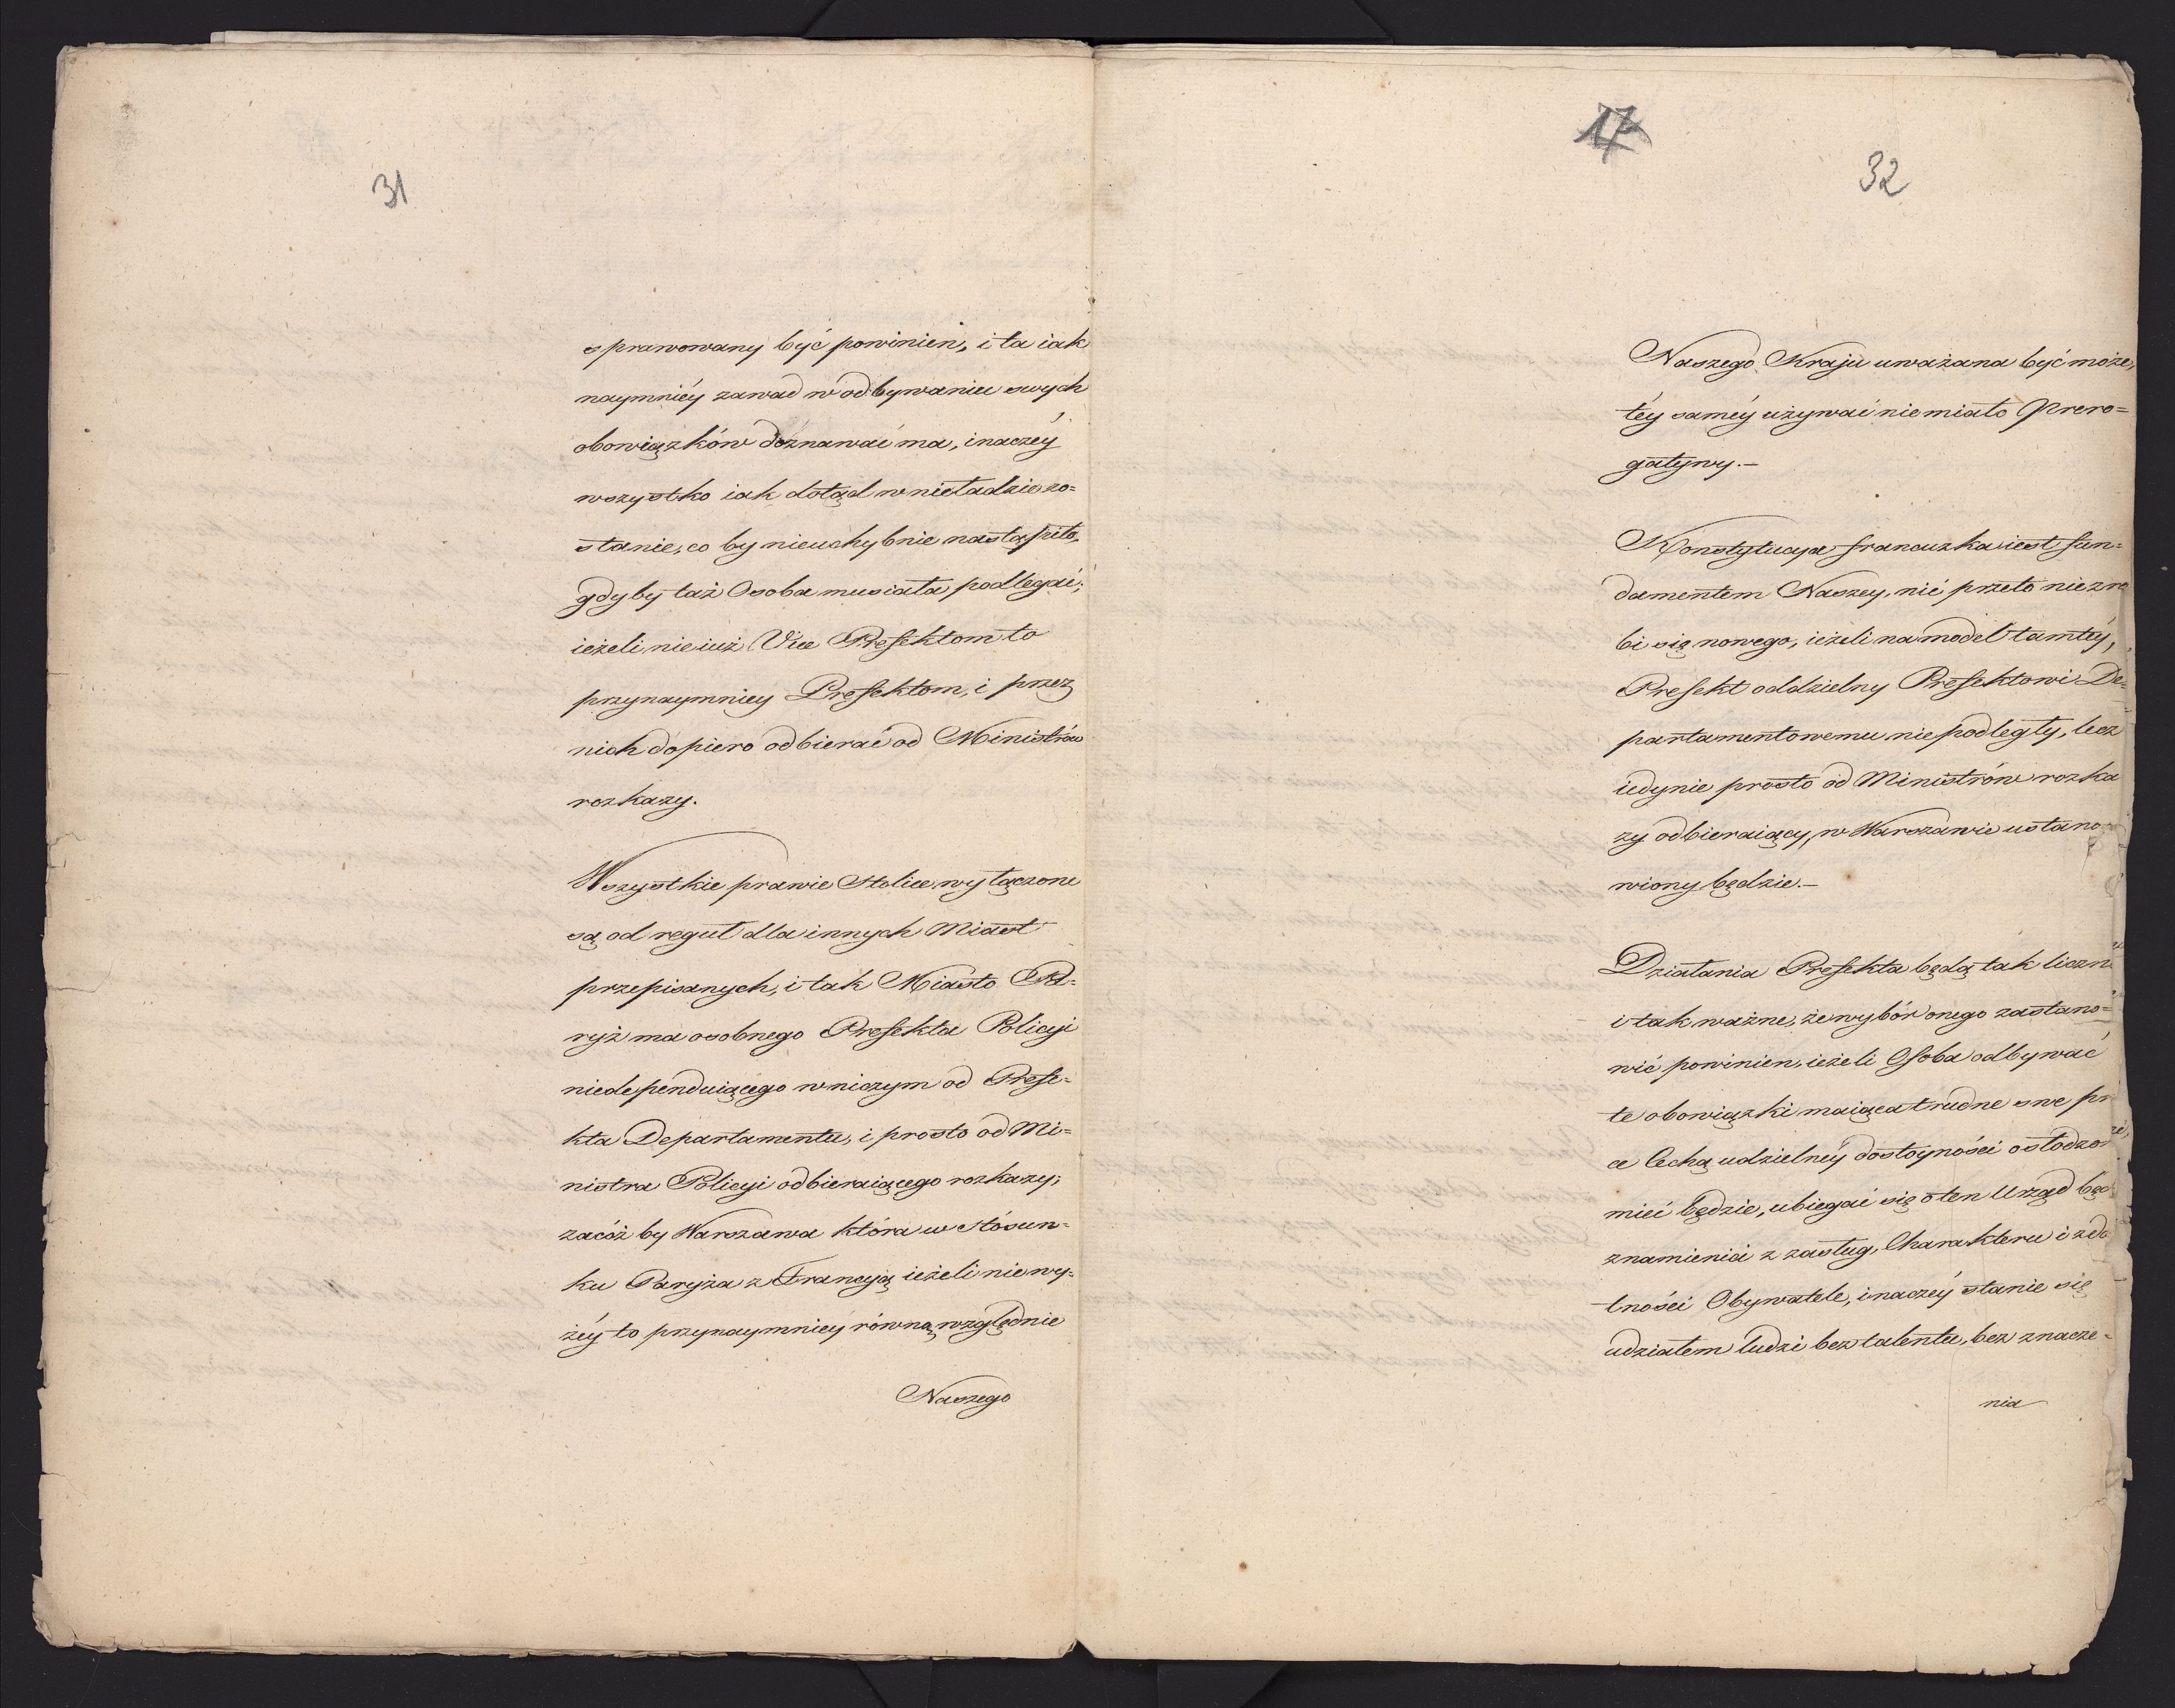 31
sprawowany być powinien, i ta iak
naymniéy zawad w odbywaniu swych
obowiązków doznawać ma, inaczéy
wszystko iak dotąd w nieładzie zo=
stanie, co by nieuchybnie nastąpiło,
gdyby taż Osoba musiała podlegać;
ieżeli nie iuż Vice Prefektom to
przynaymniey Prefektom, i przez
nich dopiero odbierać od Ministrów
rozkazy.
Wszystkie prawie Stolice wyłączone
są od reguł dla innych Miast
przepisanych, i tak Miasto Pa=
ryż ma osobnego Prefekta Policyi
niedependuiącego w niczym od Prefe=
kta Departamentu, i prosto od Mi=
nistra Policyi odbieraiącego rozkazy;
zacóż by Warszawa która w stósun=
ku Paryża z Francyą ieżeli nie wy=
żéy to przynaymniéy równą względnie
Naszego
17
32
Naszego Kraju uważana być może,
téy saméy używać nie miała Prero=
gatywy.—
Konstytucya francuzka iest fun=
damentem Naszey, nic przeto nie zro
bi się nowego, ieżeli na model tamtéy,
Prefekt oddzielny Prefektowi De=
partamentowemu nie podległy, lecz
iedynie prosto od Ministrów rozka
zy odbieraiący, w Warszawie ustano
wiony będzie.—
Działania Prefekta będą tak liczn
i tak ważne, że wybór onego zastano=
wić powinien, ieżeli Osoba odbywać
te obowiązki maiąca trudne swe pr
ce Cechą udzielnéy dostoyności osłodzo
mieć będzie, ubiegać się o ten Urząd będ
znamienici z zasług, Charakteru i zdo
lności Obywatele, inaczéy stanie się
udziałem ludzi bez talentu, bez znacze=
nia